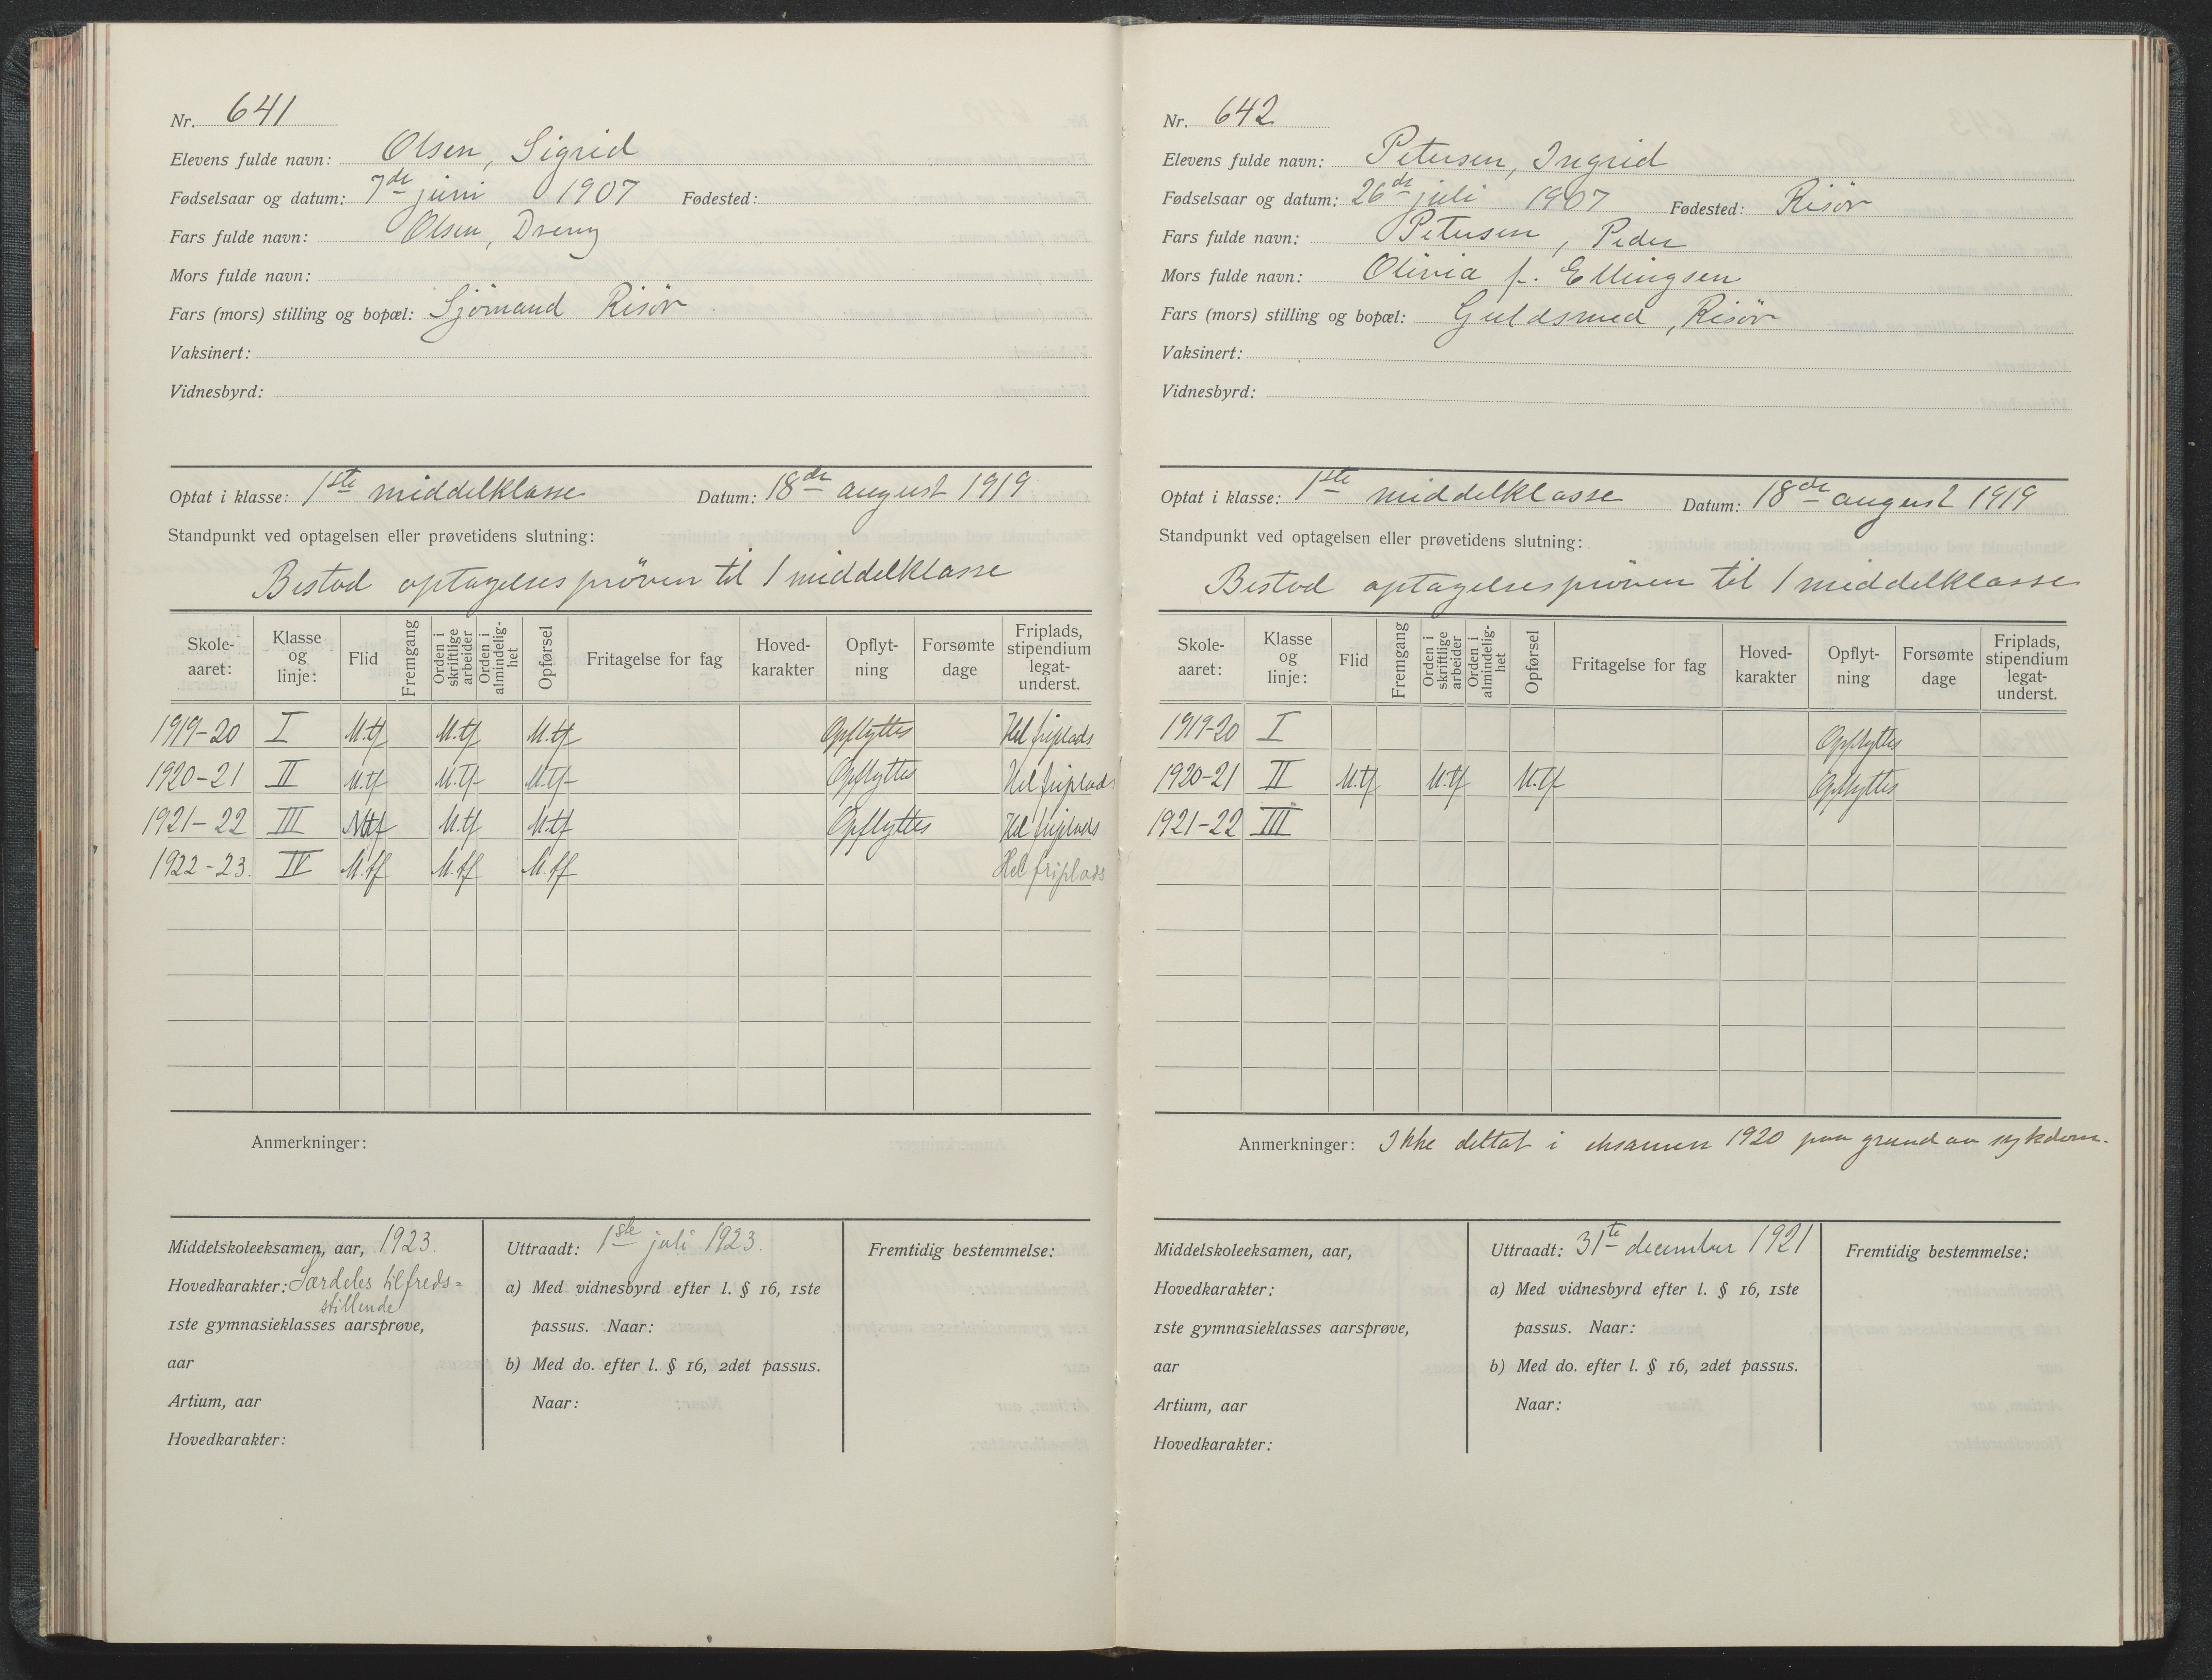 Nr. 641
Elevens fulde navn: Olsen, Sigrid
Fødselsaar og datum: 7de juni 1907 Fødested:
Fars fulde navn: Olsen,
Mors fulde navn:
Fars (mors) stilling og bopæl: Sjömand Risör
Vaksinert:
Vidnesbyrd:
Optat i klasse: 1ste middelklasse Datum: 18de august 1919
Standpunkt ved optagelsen eller prøvetidens slutning:
Bestod optagelsespröven til 1 middelklasse
Skole-aaret: Klasse og linje: Flid Fremgang Orden i skriftlige arbeider Orden i almindelig-het Opførsel Fritagelse for fag Hoved-karakter Opflyt-ning Forsømte dage Friplads, stipendium legat-underst.
1919-20 I M.tf M.tf M.tf Opflyttes Hel friplads
1920-21 II M.tf M.tf M.tf Opflyttes Hel friplads
1921-22 III M.tf M.tf M.tf Opflyttes Hel friplads
1922-23. IV M.tf M.tf M.tf Hel friplads
Anmerkninger:
Middelskoleeksamen, aar, 1923.
Hovedkarakter: Særdeles tilfreds=
stillende
1ste gymnasieklasses aarsprøve,
aar
Artium, aar
Hovedkarakter:
Uttraadt: 1ste juli 1923.
a) Med vidnesbyrd efter l. § 16, 1ste
passus. Naar:
b) Med do. efter l. § 16, 2det passus.
Naar:
Fremtidig bestemmelse:
Nr. 642
Elevens fulde navn: Petersen, Ingrid
Fødselsaar og datum: 26de juli 1907 Fødested: Risör
Fars fulde navn: Petersen, Peder
Mors fulde navn: Olivia f. Ellingsen
Fars (mors) stilling og bopæl: Guldsmed, Risör
Vaksinert:
Vidnesbyrd:
Optat i klasse: 1ste middelklasse Datum: 18de august 1919
Standpunkt ved optagelsen eller prøvetidens slutning:
Bestod optagelsespröven til 1 middelklasse
Skole-aaret: Klasse og linje: Flid Fremgang Orden i skriftlige arbeider Orden i almindelig-het Opførsel Fritagelse for fag Hoved-karakter Opflyt-ning Forsømte dage Friplads, stipendium legat-underst.
1919-20 I Opflyttes
1920-21 II M.tf M.tf M.tf Opflyttes
1921-22 III
Anmerkninger: Ikke deltat i eksamen 1920 paa grund av sykdom.
Middelskoleeksamen, aar,
Hovedkarakter:
1ste gymnasieklasses aarsprøve,
aar
Artium, aar
Hovedkarakter:
Uttraadt: 31te december 1921
a) Med vidnesbyrd efter l. § 16, 1ste
passus. Naar:
b) Med do. efter l. § 16, 2det passus.
Naar:
Fremtidig bestemmelse: